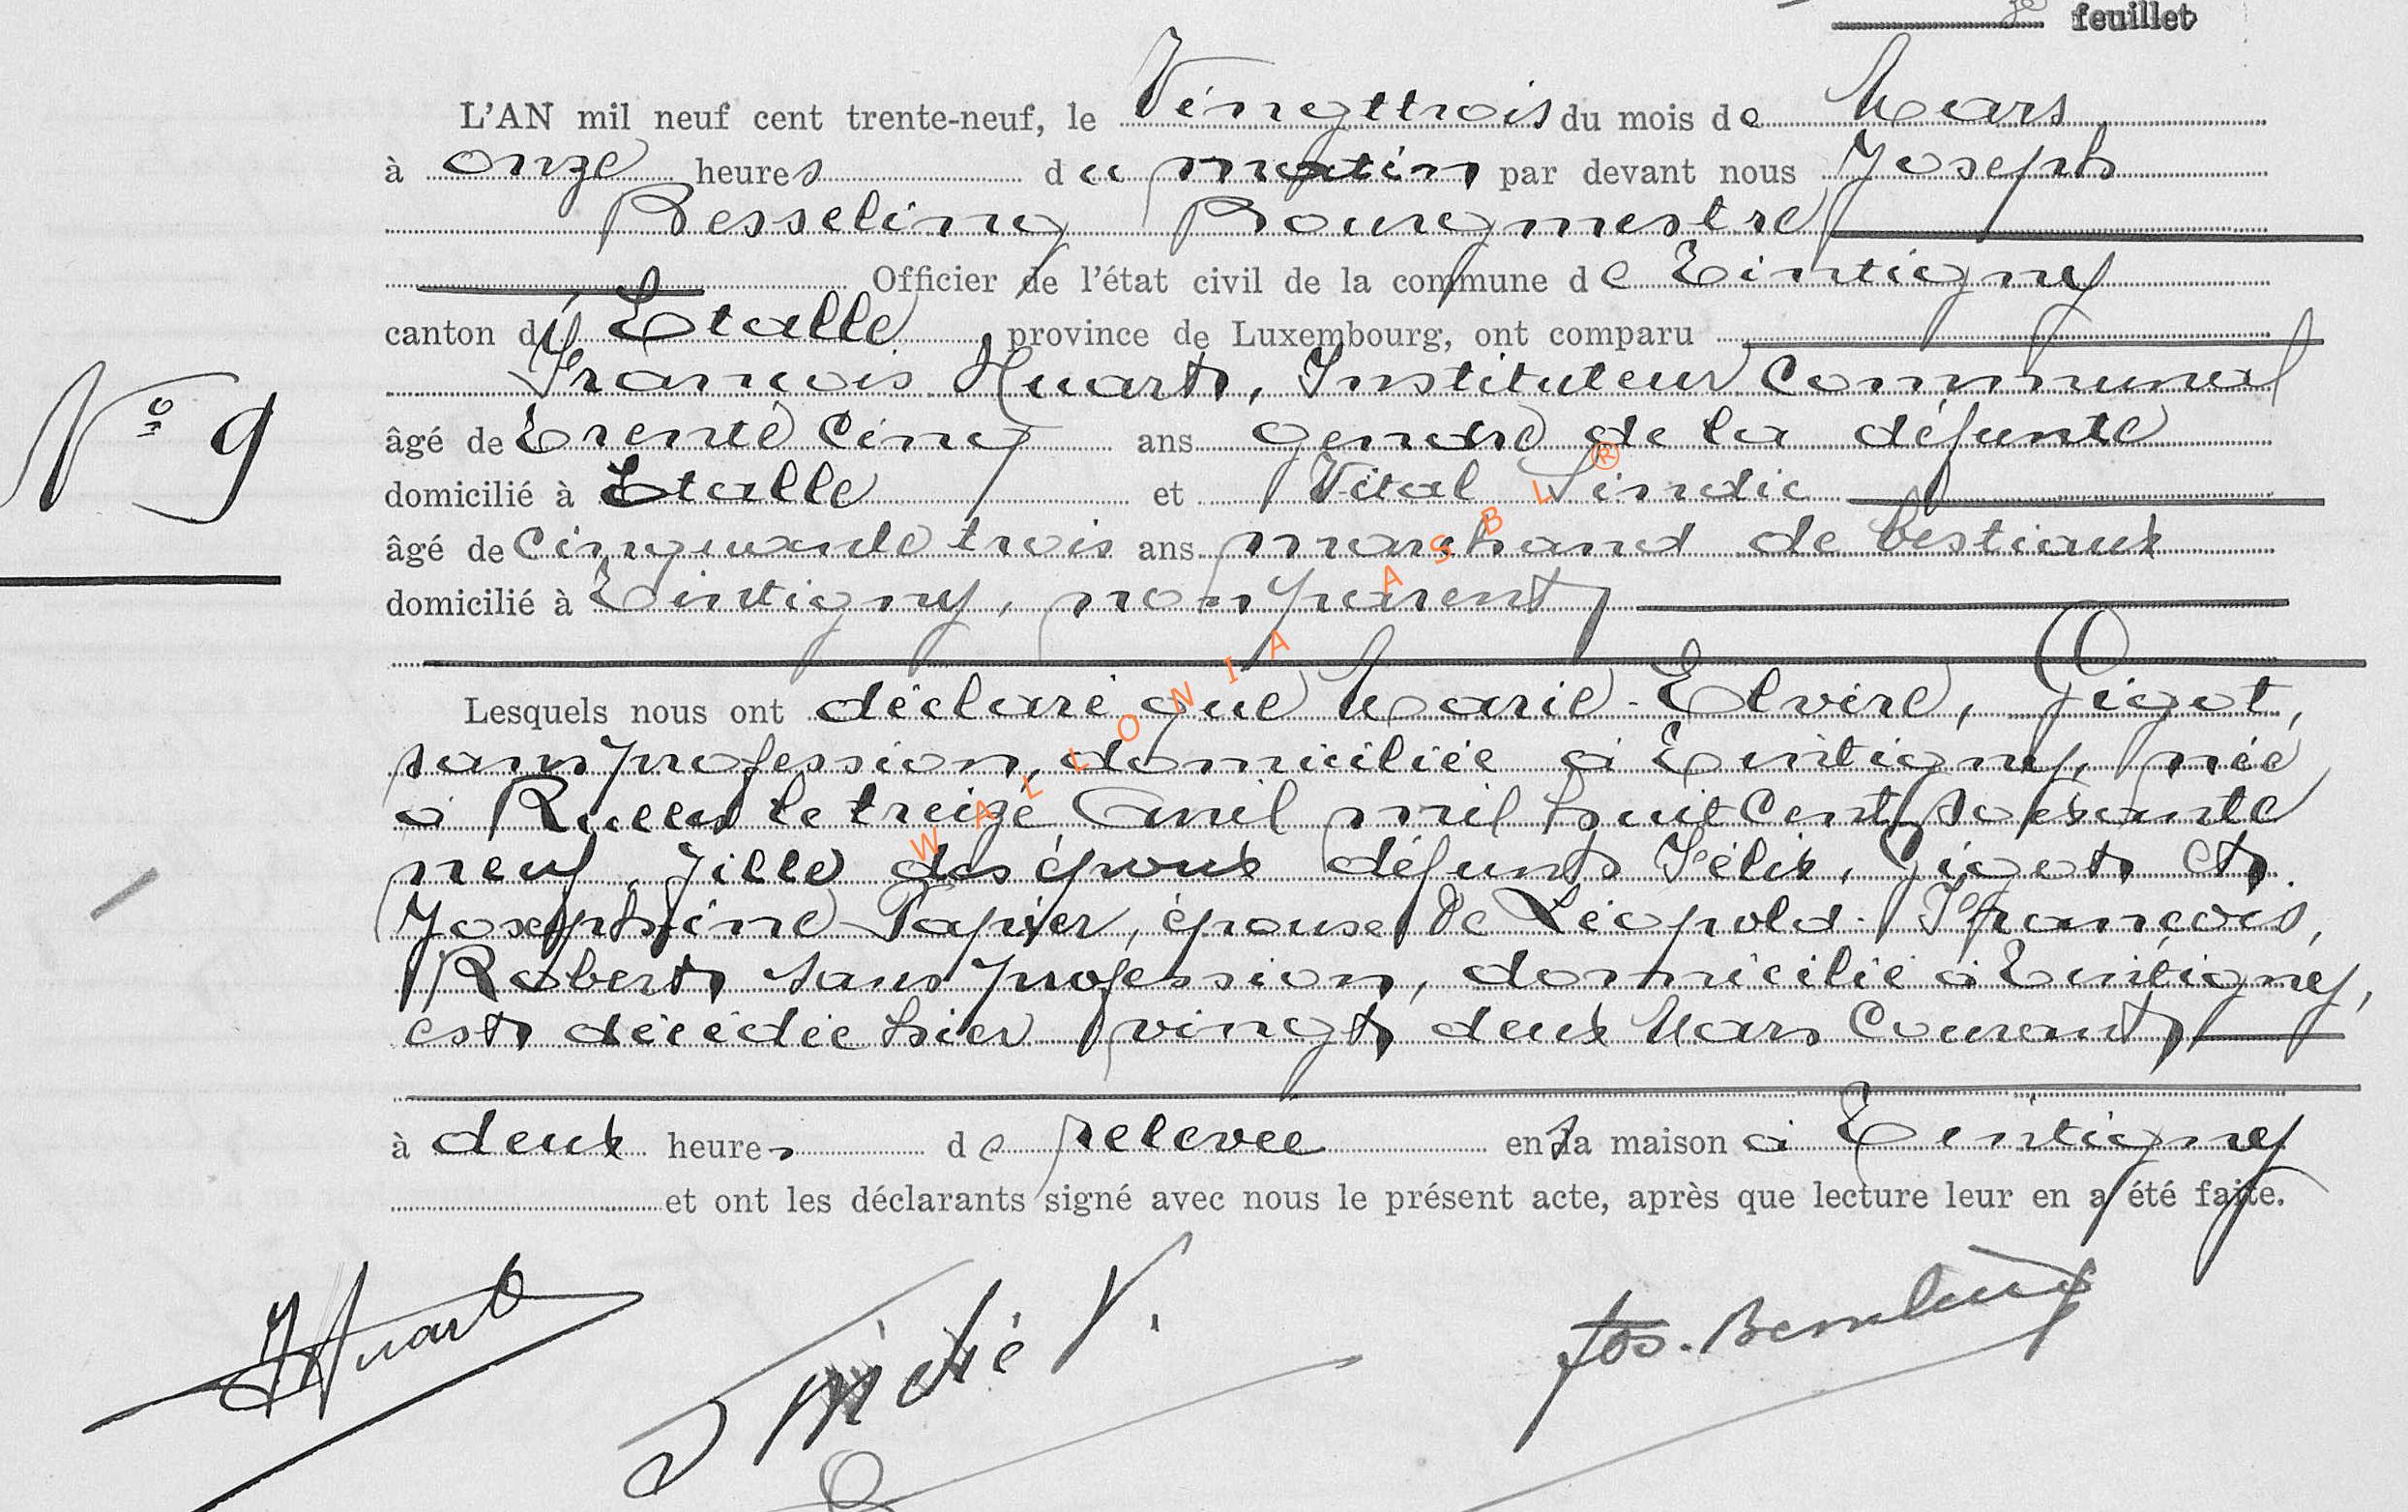 feuillet
L'AN mil neuf cent trente-neuf, le Vingt trois du mois de Mars
à onze heures du matin par devant nous Joseph
Besseling Bourgmestre
Officier de l'état civil de la commune de Tintigny
canton d' Etalle province de Luxembourg, ont comparu
François Huart, Instituteur Communal
N° 9
âgé de Trente cinq ans gendre de la défunte
domicilié à Etalle et Vital Sindic
âgé de Cinquante trois ans marchand de bestiaux
domicilié à Tintigny, non parent
Lesquels nous ont déclaré que Marie-Elvire, Gigot,
sans profession, domiciliée à Tintigny, née
à Rulles le treize Avril mil huit cent soixante
neuf, fille des époux défunts Félix, Gigot et
Josephine Papier, épouse de Léopold-François,
Robert sans profession, domicilié à Tintigny,
est décédée hier vingt deux Mars Courant,
à deux heures de relevée en sa maison à Tintigny
et ont les déclarants signé avec nous le présent acte, après que lecture leur en a été faite.
JHuart V. Jos. Besseling
WALLONIA ASBL ®